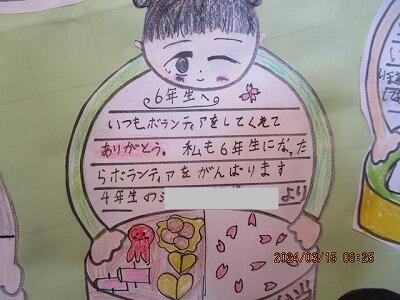 6年生へ
いつもボランティアをしてくれて
ありがとう。私も6年生になった
らボランティアをがんばります
4年生の
より
2024/03/15 09:25